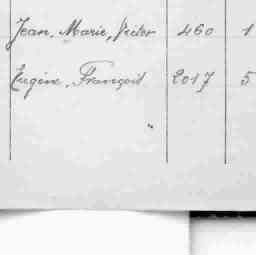 Jean, Marie, Victor 460 1
Eugène, François 2017 5
"